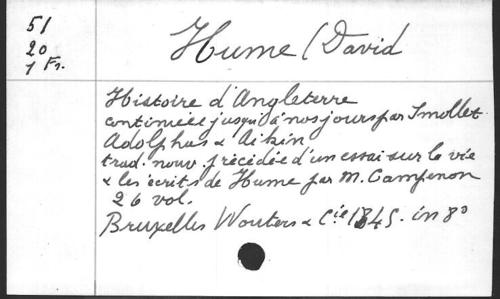 51
20
1 Fr.
Hume (David
Histoire d'Angleterre
continuée jusqu'à nos jours par Smollet
Adolphus & Aikin
trad. nouv. précédée d'un essai sur la vie
& les écrits de Hume par M. Campenon
26 vol.
Bruxelles Wouters & Cie 1845. in 8o